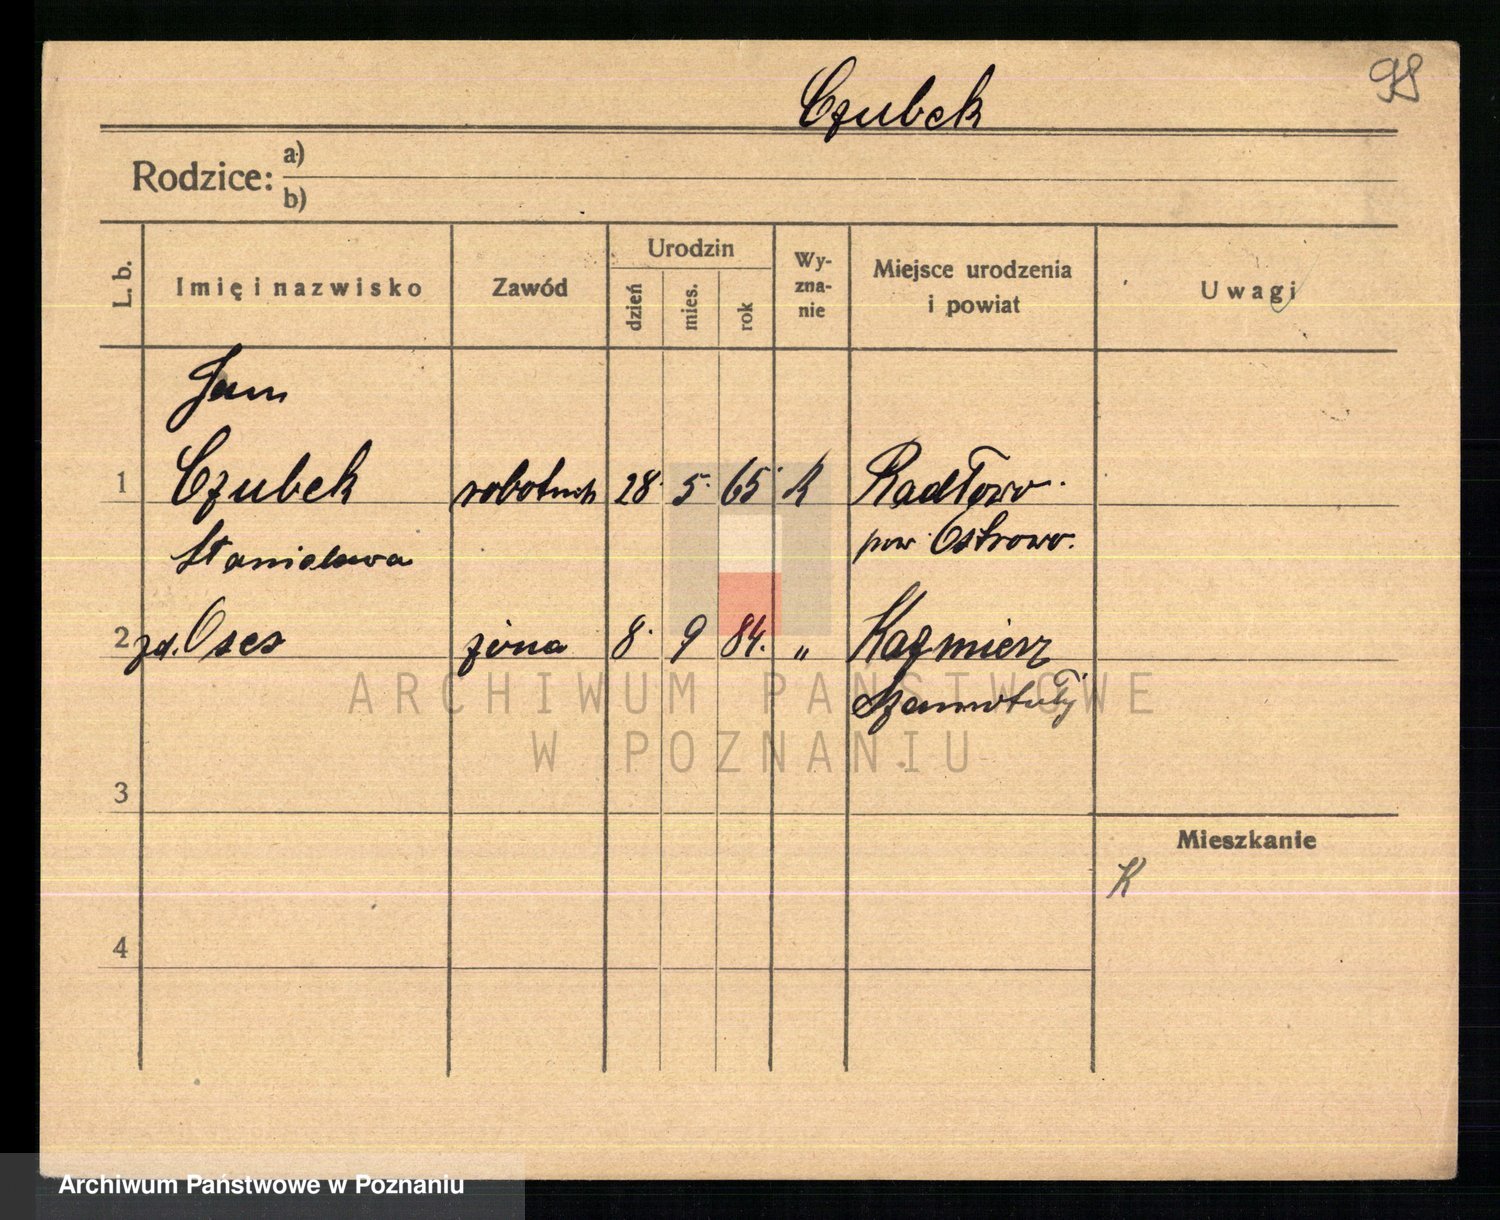 98
Czubek
Rodzice: a)
b)
L. b.
Imię i nazwisko
Zawód
Urodzin
dzień
mies.
rok
Wy-
zna-
nie
Miejsce urodzenia
i powiat
Uwagi
Jan
1 Czubek robotnik 28. 5. 65. K Radłowo.
pow. Ostrowo.
Stanisława
2 zd. Oses żona 8. 9 84. „ Kaźmierz
Szamotuły
ARCHIWUM PAŃSTWOWE
W POZNANIU
3
Mieszkanie
K
4
Archiwum Państwowe w Poznaniu